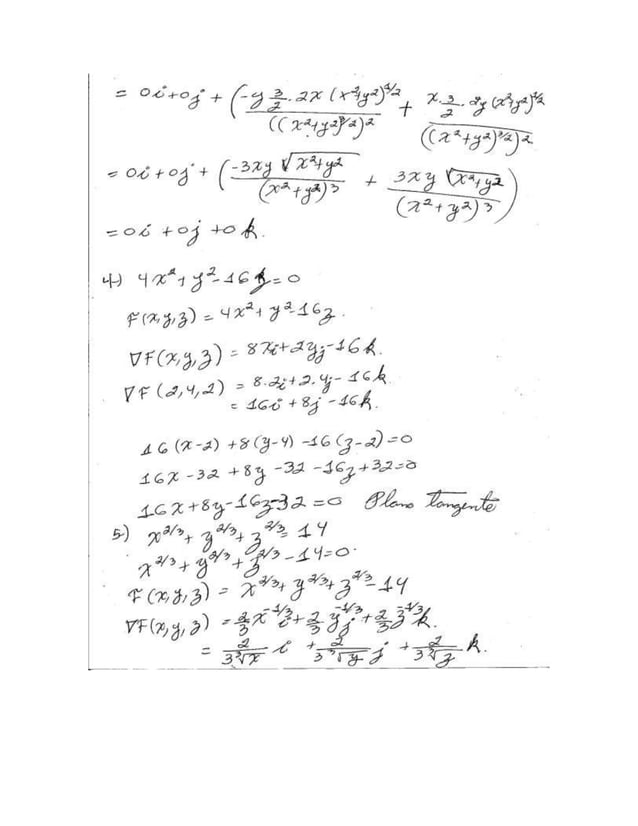 = 0i+0j + (-y 3/2 · 2x (x²+y²)^1/2 / ((x²+y²)^3/2)² + x · 3/2 · 2y (x²+y²)^1/2 / ((x²+y²)^3/2)²
= 0i+0j + (-3xy √x²+y² / (x²+y²)³ + 3xy √x²+y² / (x²+y²)³)
= 0i + 0j + 0k.
4) 4x² + y² - 16z = 0
F(x,y,z) = 4x² + y² - 16z.
∇F(x,y,z) = 8xi + 2yj - 16k.
∇F(2,4,2) = 8.2i + 2.4j - 16k
= 16i + 8j - 16k.
16(x-2) + 8(y-4) - 16(z-2) = 0
16x - 32 + 8y - 32 - 16z + 32 = 0
16x + 8y - 16z - 32 = 0 Plano Tangente
5) x^2/3 + y^2/3 + z^2/3 = 14
x^2/3 + y^2/3 + z^2/3 - 14 = 0.
F(x,y,z) = x^2/3 + y^2/3 + z^2/3 - 14
∇F(x,y,z) = 2/3 x^-1/3 i + 2/3 y^-1/3 j + 2/3 z^-1/3 k.
= 2/(3∛x) i + 2/(3∛y) j + 2/(3∛z) k.